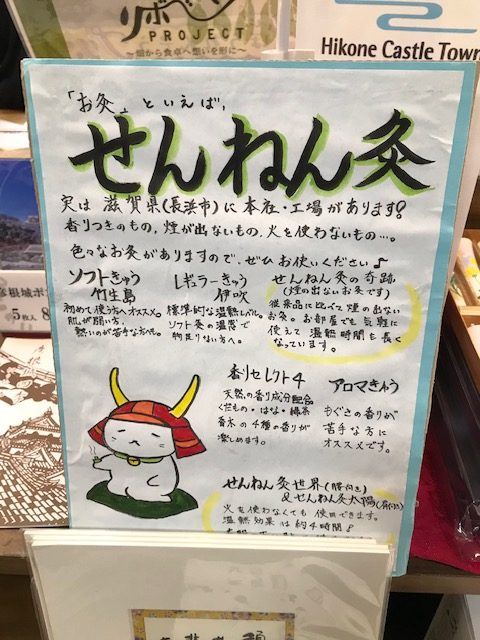 PROJECT
～畑から食卓へ想いを形に～
Hikone Castle Town
「お灸」といえば、
せんねん灸
実は 滋賀県(長浜市)に本社・工場があります!
香りつきのもの、煙が出ないもの、火を使わないもの…。
色々なお灸がありますので、ぜひお使いください♪
ソフトきゅう
竹生島
初めて使う方へオススメ。
肌が弱い方、
熱いのが苦手な方へ。
レギュラーきゅう
伊吹
標準的な温熱レベル。
ソフト灸の温度で
物足りない方へ。
せんねん灸の奇跡
(煙の出ないお灸です)
従来品に比べて煙の出ない
お灸。お部屋でも気軽に
使えて温熱時間も長く
なっています。
香りセレクト4
天然の香り成分配合
くだもの・はな・緑茶
香木の4種の香りが
楽しめます。
アロマきゅう
もぐさの香りが
苦手な方に
オススメです。
せんねん灸世界(腰付き)
&せんねん灸太陽
火を使わなくても使用できます。
温熱効果は約4時間!
彦根城ポ
5枚入